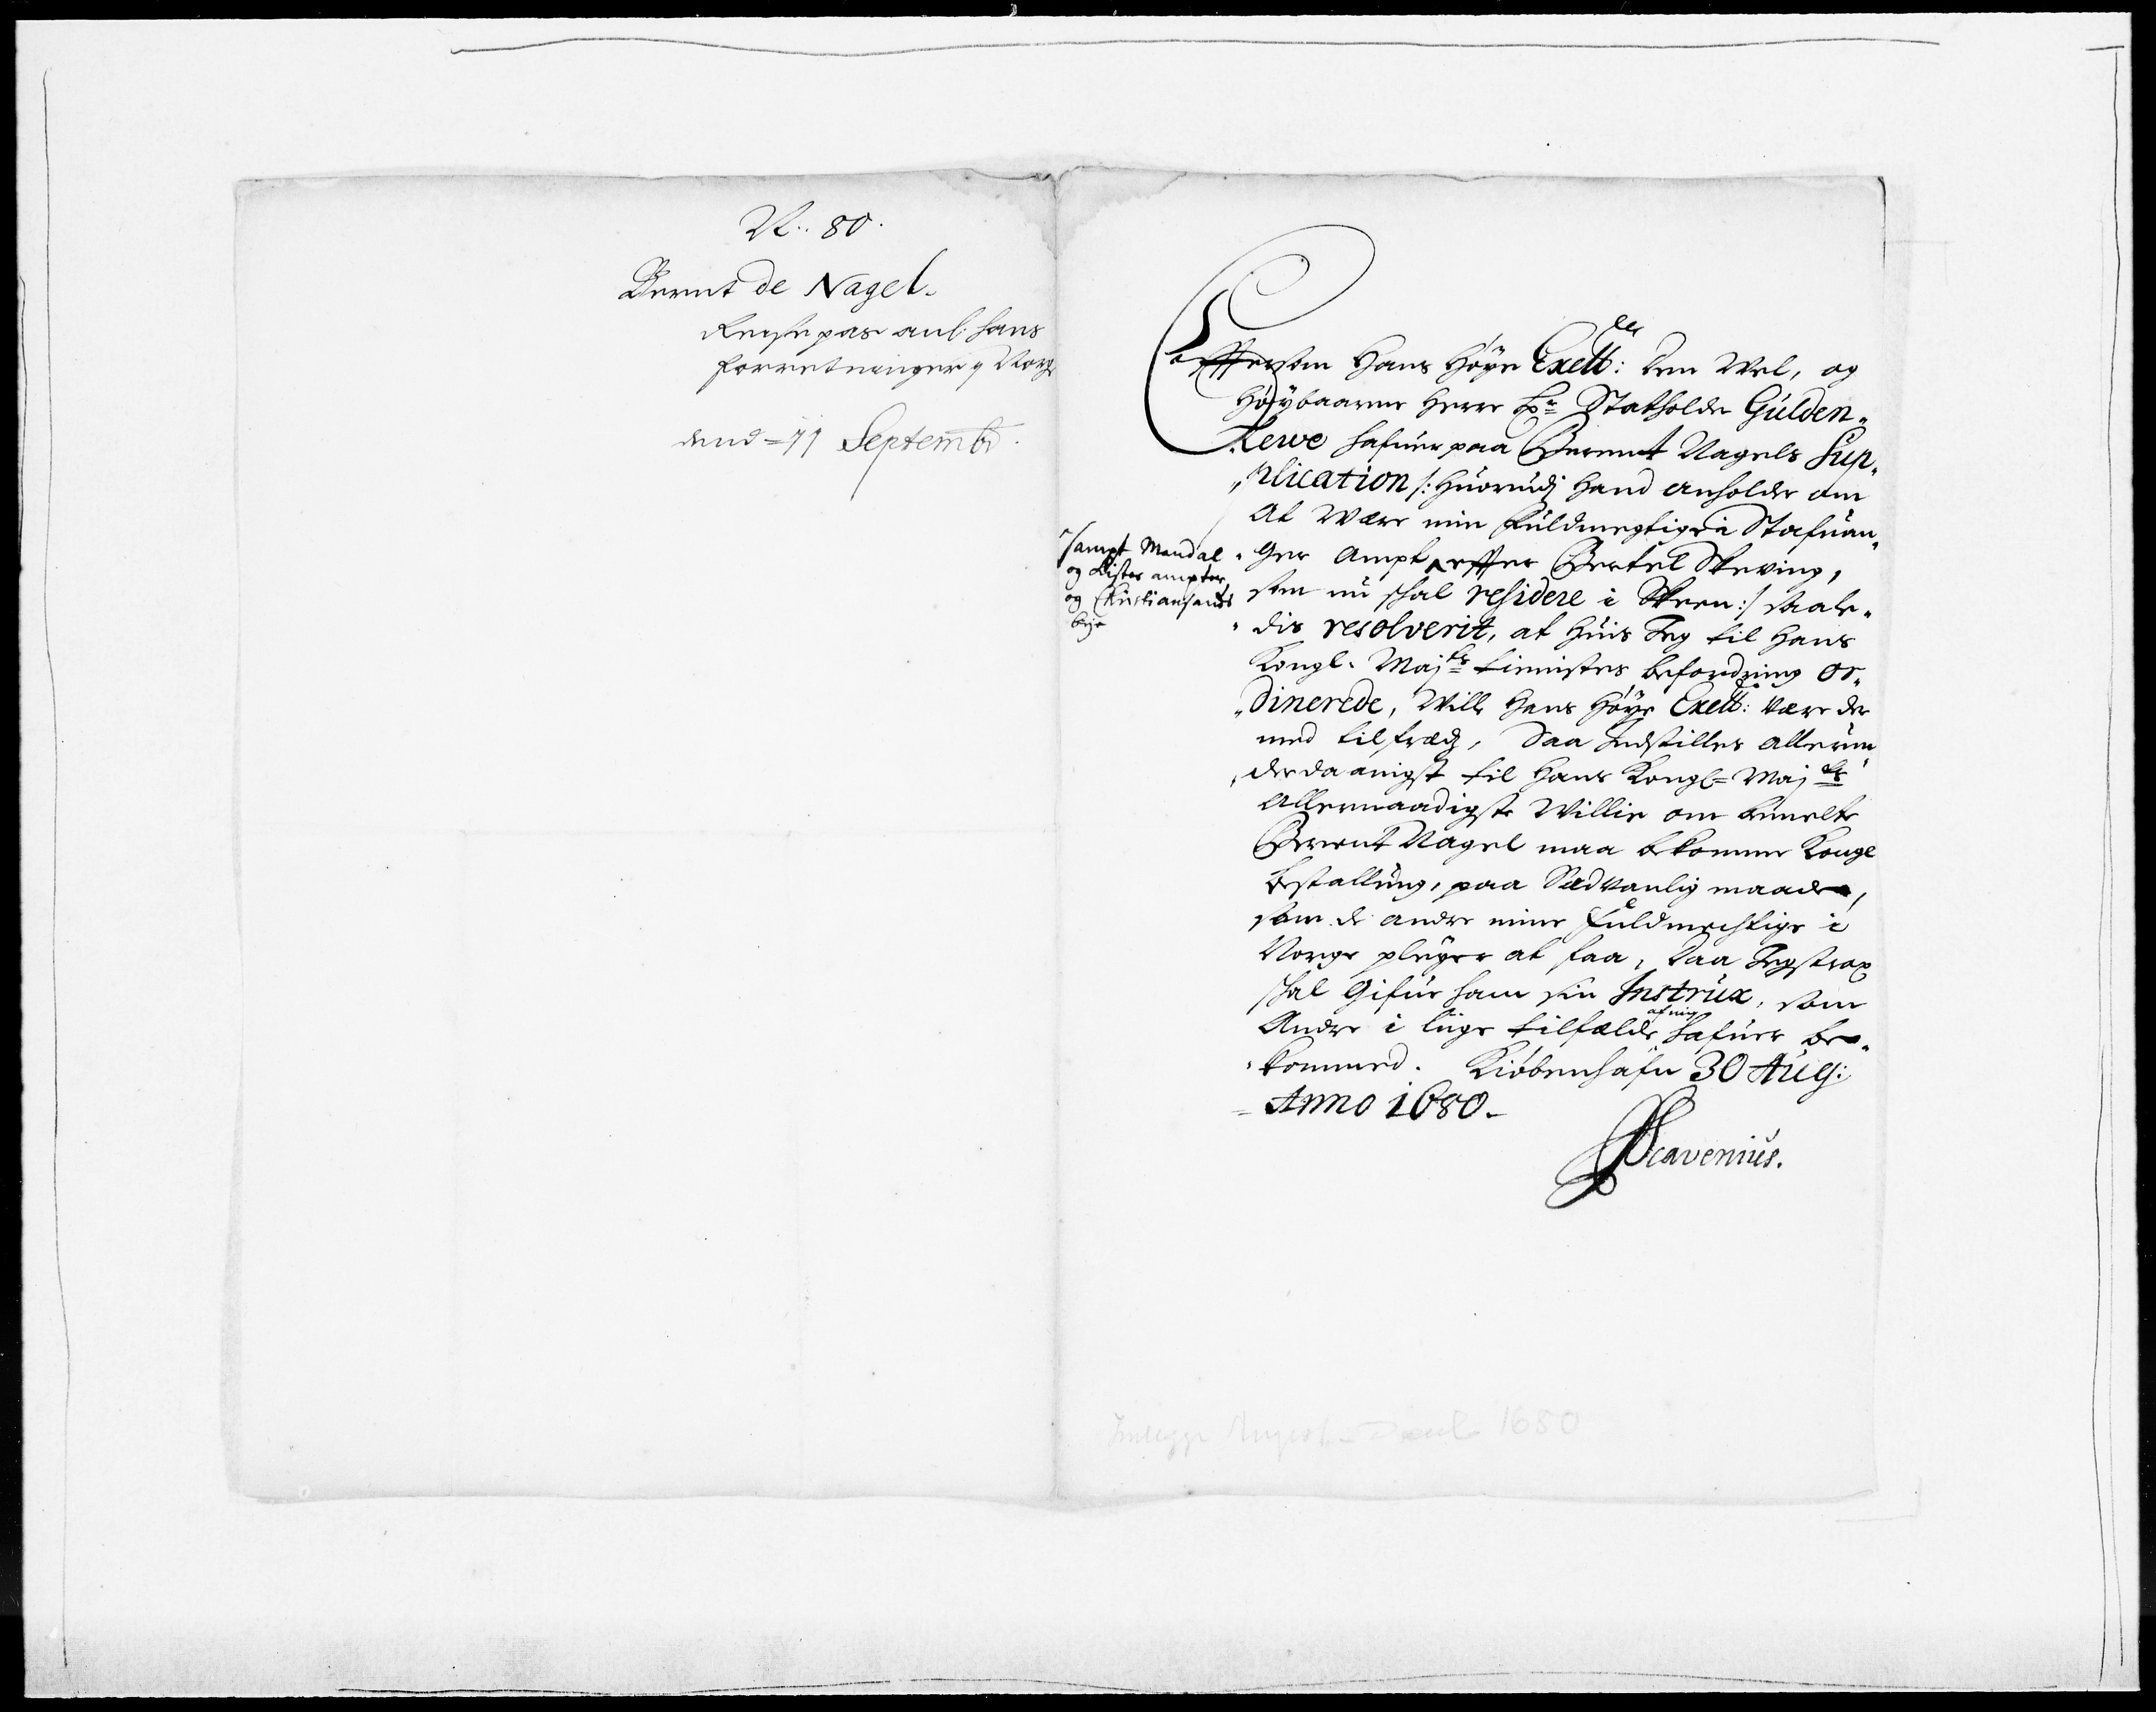 N.. 80.
Bernt de Nagel.
Reysepas anl: hans
forretninger i Norge
dend = 11 Septembr.
Efftersom Hans Høye Excell: den Wel, og
Høÿbaarne Herre Hr Statholder Gülden„
„lewe hafuer paa Berent Nagels Sup„
„plication /: Huorudj Hand anholder om
At Være min Fuldmegtige i Stafuan„
„ger Ampt, effter Bertel Skeving,
som nu skal residere i Skeen :/ saale„
„dis resolverit, at huis Jeg til Hans
Kongl. Majts tienistes befordring or„
„dinerede, Wille Hans Høÿe Excell: Være der
med tilfredz, Saa Indstilles allerun„
„derdanigst til Hans Kongl= Majts
Allernaadigste Willie om bemelte
Berent Nagel maa bekomme Kongl
bestalling, paa Sædvanlig maade,
som de andre mine Fuldmechtige i
Norge pleyer at faa, Saa Jeg strax
skal Gifue ham sin Instrux, som
Andre i liige tilfælde af mig hafuer be„
„kommed. Kiøbenhafn 30 Aug:
Anno 1680.
Scavenius.
sampt Mandal
og Lister ampter,
og Christiansands
bye
Indlegge August - Decbr 1680